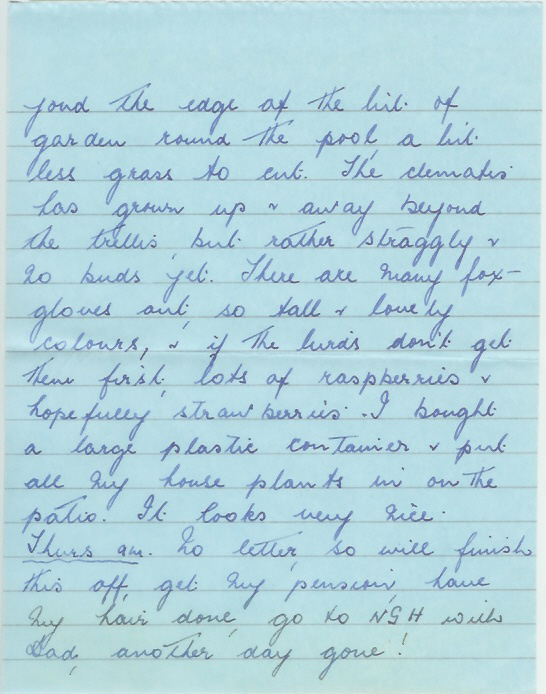 yond the edge of the bit of
garden round the pool, a bit
less grass to cut. The clematis
has grown up & away beyond
the trellis, but rather straggly &
no buds yet. There are many fox-
gloves out, so tall & lovely
colours, & if the birds don't get
them first, lots of raspberries &
hopefully strawberries. I bought
a large plastic container & put
all my house plants in on the
patio. It looks very nice.
Thurs am. No letter, so will finish
this off, get my pension, have
my hair done, go to NGH with
Dad, another day gone!